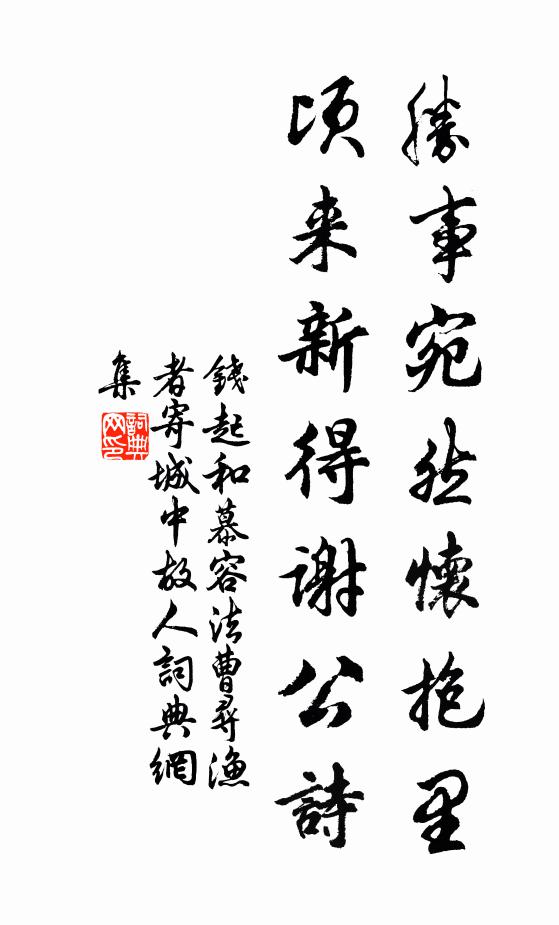 勝事宛然懷抱里
頃来新得謝公詩
錢起和慕容法曹尋漁
者寄城中故人詞典網
集
詞典
网印